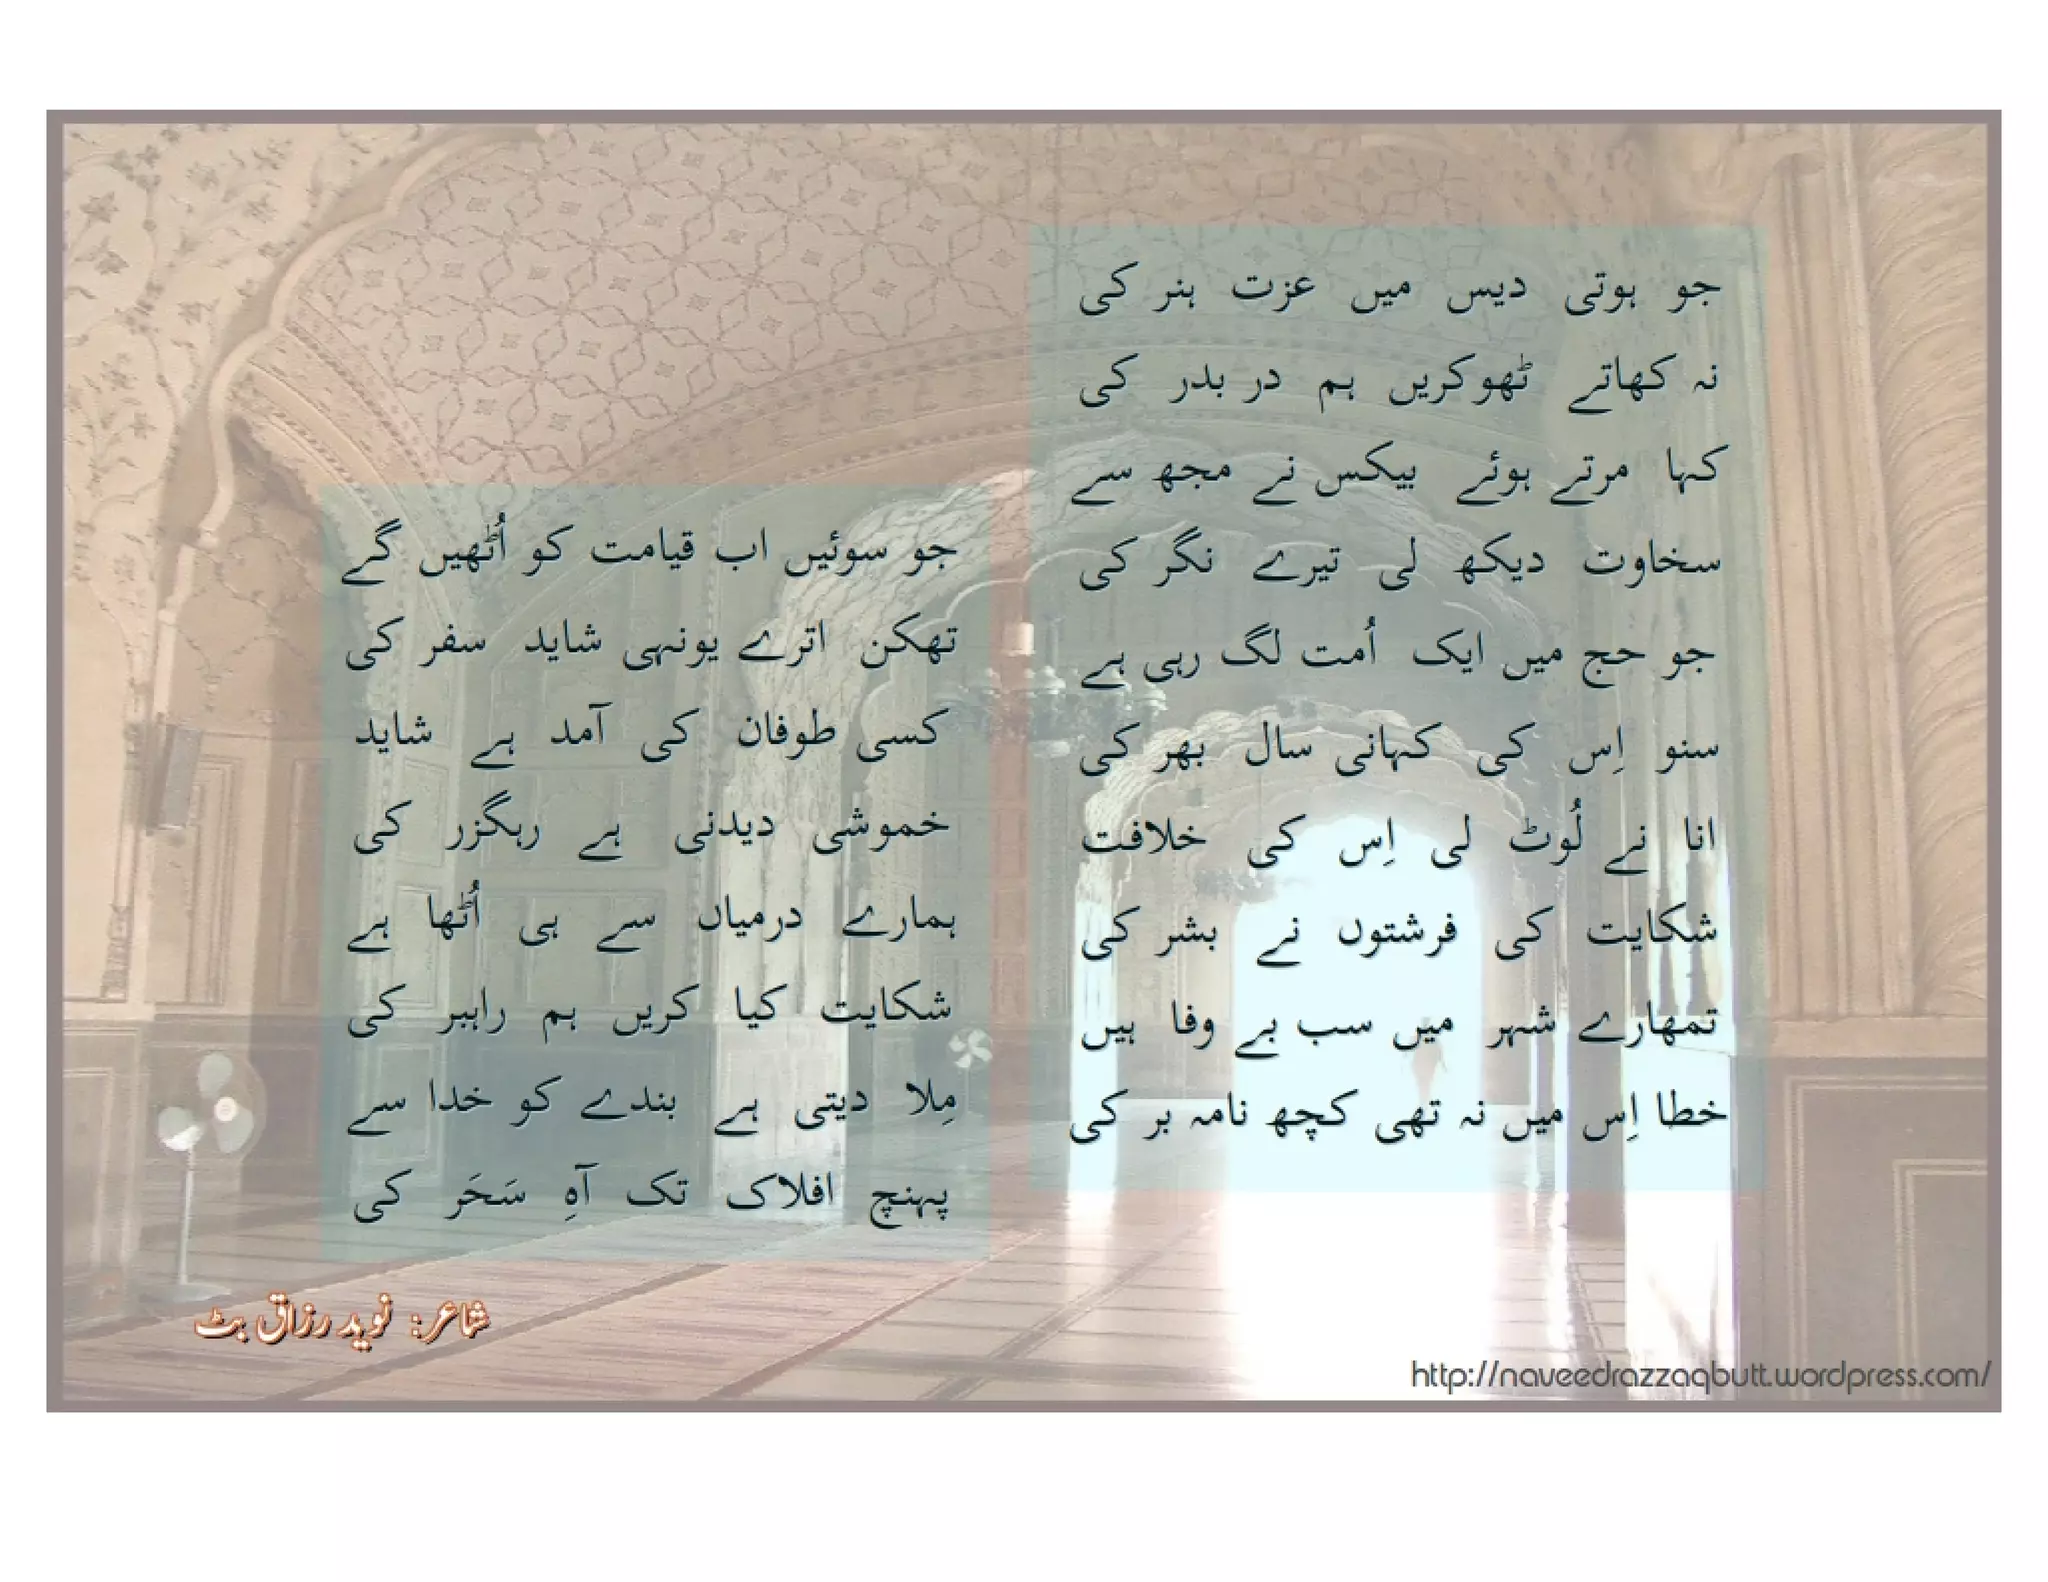 جو ہوتی دیس میں عزت ہنر کی
نہ کھاتے ٹھوکریں ہم در بدر کی
کہا مرتے ہوئے بیکس نے مجھ سے
سخاوت دیکھ لی تیرے نگر کی
جو حج میں ایک اُمت لگ رہی ہے
سنو اِس کی کہانی سال بھر کی
انا نے لُوٹ لی اِس کی خلافت
شکایت کی فرشتوں نے بشر کی
تمھارے شہر میں سب بے وفا ہیں
خطا اِس میں نہ تھی کچھ نامہ بر کی
جو سوئیں اب قیامت کو اُٹھیں گے
تھکن اترے یونہی شاید سفر کی
کسی طوفان کی آمد ہے شاید
خموشی دیدنی ہے رہگزر کی
ہمارے درمیاں سے ہی اُٹھا ہے
شکایت کیا کریں ہم راہبر کی
مِلا دیتی ہے بندے کو خدا سے
پہنچ افلاک تک آہِ سَحَر کی
شاعر: نوید رزاق بٹ
http://naveedrazzaqbutt.wordpress.com/